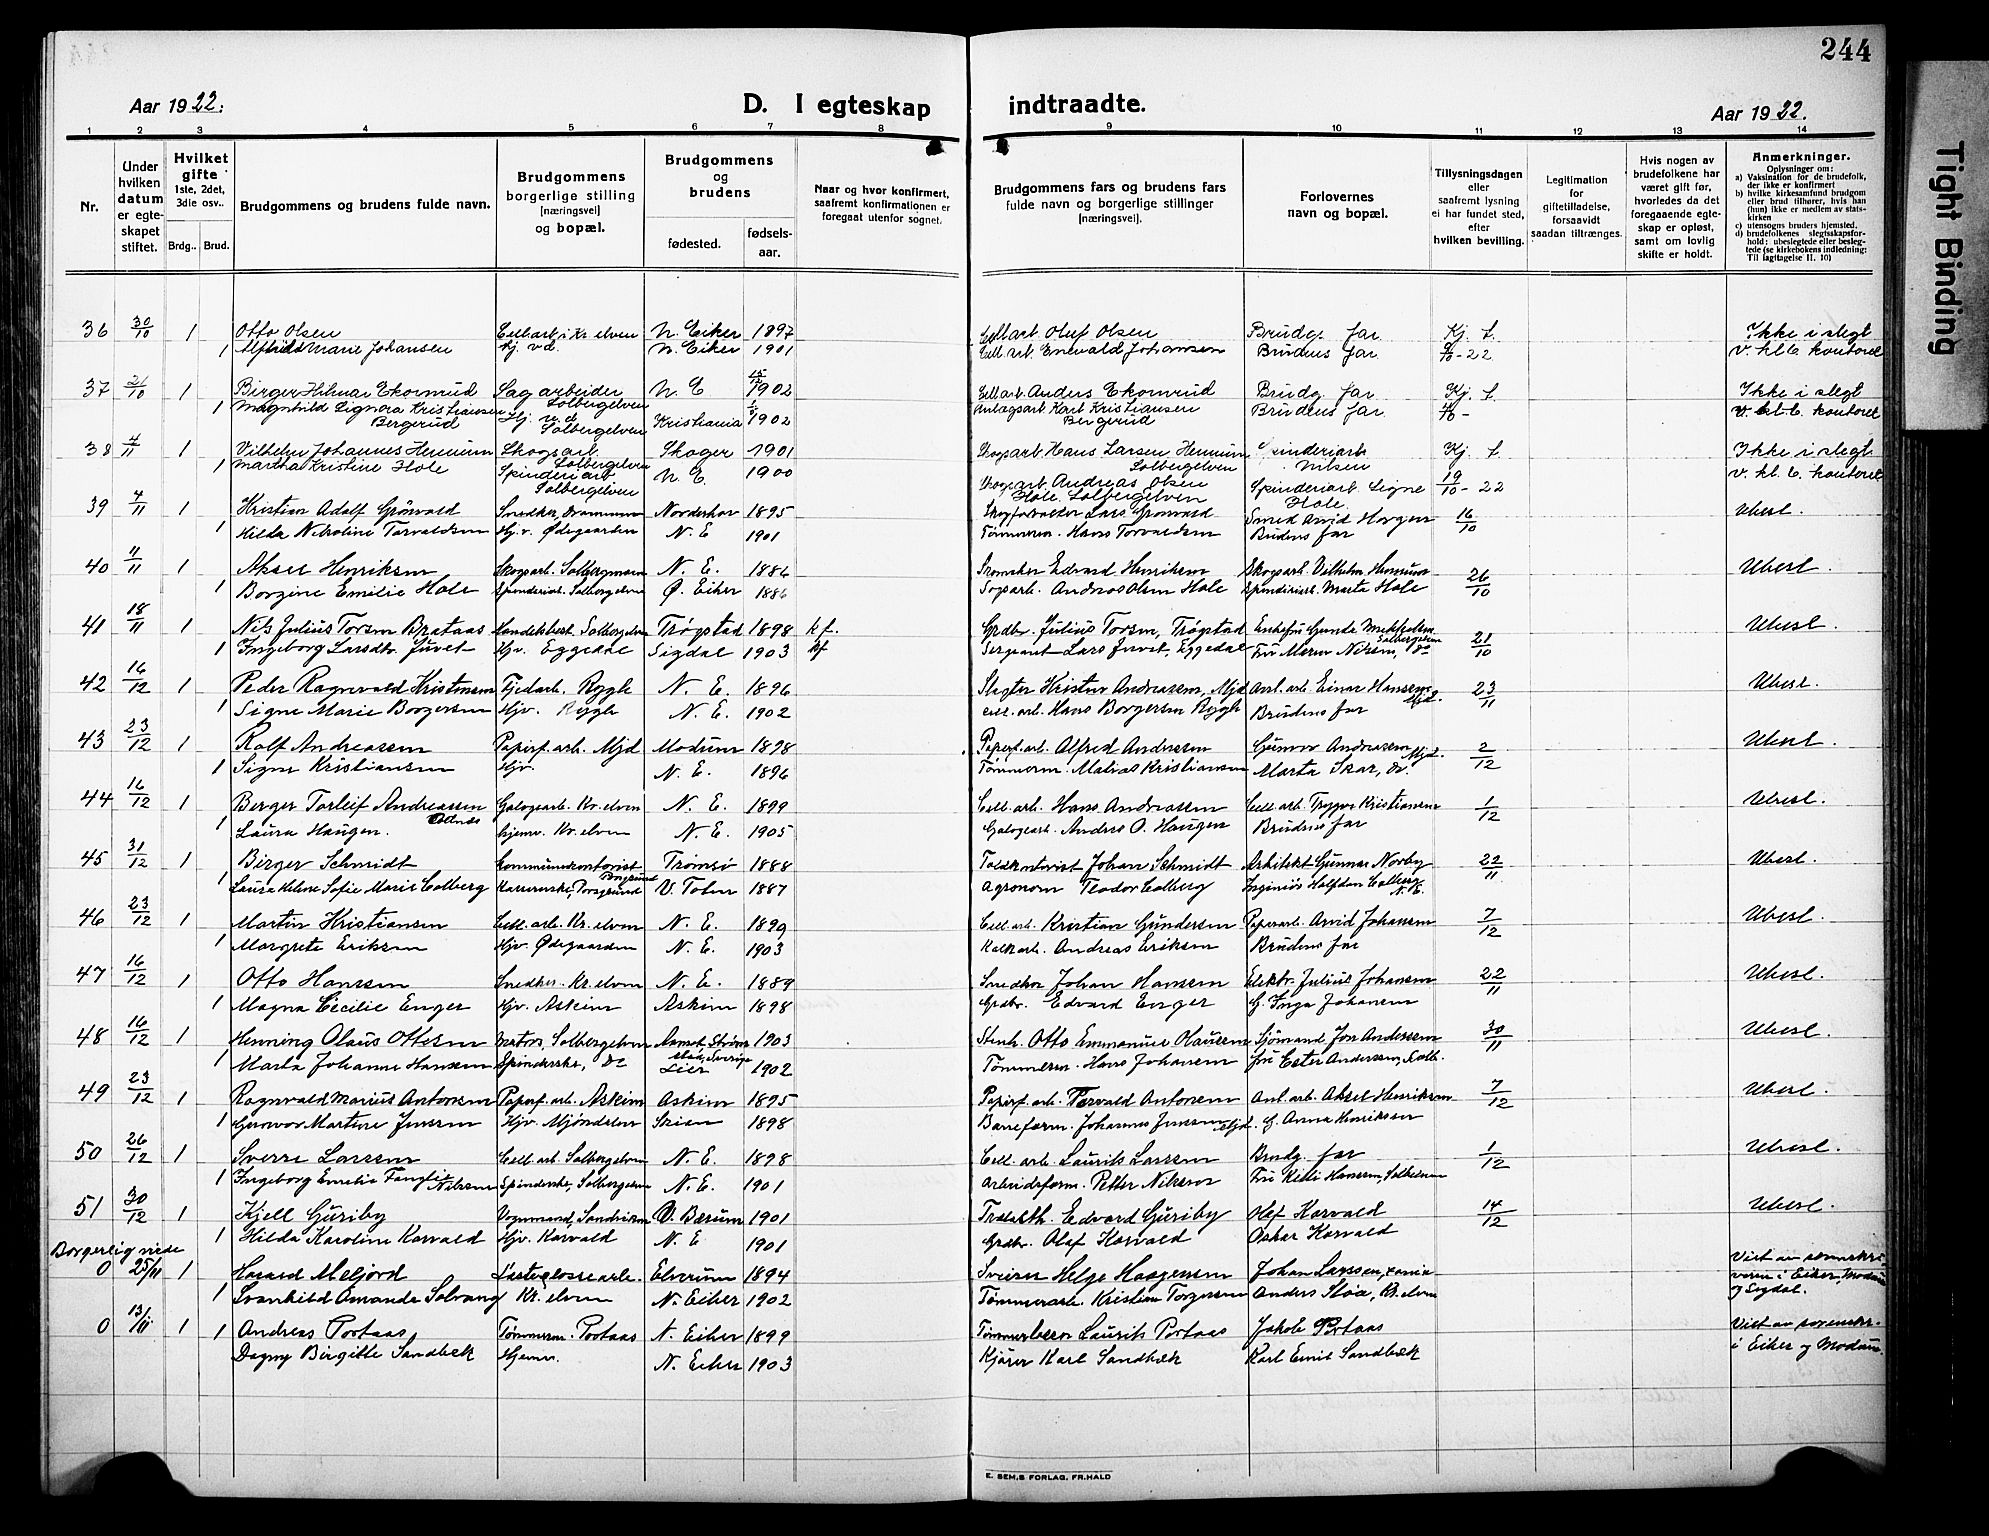 244
Aar 1922.
D. I egteskap
indtraadte.
Aar 1922.
1 2 3 4 5 6 7 8 9 10 11 12 13 14
Nr.
Under hvilken datum er egteskapet stiftet.
Hvilket gifte 1ste, 2det, 3die osv..
Brdg.. Brud.
Brudgommens og brudens fulde navn.
Brudgommens borgerlige stilling (næringsvei) og bopæl.
Brudgommens og brudens
fødested.
fødsels-aar.
Naar og hvor konfirmert, saafremt konfirmationen er foregaat utenfor sognet.
Brudgommens fars og brudens fars fulde navn og borgerlige stillinger (næringsvei).
Forlovernes navn og bopæl.
Tillysningsdagen eller saafremt lysning ei har fundet sted, efter hvilken bevilling.
Legitimation for giftetilladelse, forsaavidt saadan tiltrænges.
Hvis nogen av brudefolkene har været gift før, hvorledes da det foregaaende egteskap er opløst, samt om lovlig skifte er holdt.
Anmerkninger.
Oplysninger om:
a) Vaksination for de brudefolk, der ikke er konfirmert
b) hvilke kirkesamfund brudgom eller brud tilhører, hvis han (hun) ikke er medlem av statskirken
c) utensogns bruders hjemsted.
d) brudefolkenes slegtsskapsforhold: ubeslegtede eller beslegtede (se kirkebokens indledning: Til iagttagelse II. 10)
36 30/10 1 Otto Olsen Cell.arb. i Kr. elven N. Eiker 1897 Cell.arb Oluf Olsen Brudg. far Kj. f. Ikke i slegt
1 Marie Johansen Hj. v.d. N. Eiker 1901 Cell. arb. Enevald Johansen Brudens far /10-22 v. kl. 6. kontoret
37 21/10 1 Birger Hilmar Ekornrud Sagarbeider Solbergelven N. E 1902 Cell arb. Anders Ekornrud Brudg. far Kj. f. Ikke i slegt
1 Magnhild Signora Kristiansen Bergerud Hj. v.d. Solbergelven Kristiania 1902 Anlægsarb. Karl Kristiansen Bergerud Brudens far v. kl. 6. kontoret
38 4/11 1 Vilhelm Johannes Hennum Skogsarb. Solbergelven Skoger 1901 Skogsarb Hans Larsen Hennum Solbergelven Spinderiarb Nilsen Kj. f. Ikke i slegt
1 Martha Kristine Hole Spinderiarb. Solbergelven N. E. 1900 Skogsarb Andreas Olsen Hole. Solbergelven Spinderiarb. Signe Hole 19/10-22 v. kl. 6. kontoret
39 4/11 1 Kristian Adolf Grönvald Snedker, Drammen Norderhov 1895 Lars Grönvald Smed Arvid Horgen 16/10 Ubesl.
1 Hilda Nikoline Torvaldsen Hj.v. Ødegaarden N. E 1901 Tømmerm. Hans Torvaldsen Brudens far
40 11/11 1 Aksel Henriksen Skogsarb. Solbergmoen N. E. 1886 Skomaker Edvard Henriksen Skogsarb. Vilhelm Hennum 26/10 Ubesl.
1 Borgine Emilie Hole Spinderiarb. Solbergelven Ø. Eiker 1886 Sogsarb. Andreas Olsen Hole Spinderiarb. Marta Hole
41 18/11 1 Nils Julius Torsen Brataas Handelsbest. Solbergelven Trøgstad 1898 k f. Grdbr. Julius Torsen, Trøgstad Enkefru Gunda Mikkelsen Solbergelven 21/10 Ubesl.
1 Ingeborg Larsdtr. Juvet Hjv. Eggedal Sigdal 1903 kf Sergeant Lars Juvet, Eggedal Fru Maren Nilsen, do
42 16/12 1 Peder Ragnvald Kristensen Fjedarb. Rygh N. E. 1896 Slagter Kristen Andreassen, Mjd Anl. arb Einar Hansen Mjd. 23/11 Ubesl.
1 Signe Marie Borgersen Hjv. Rygh N. E. 1902 Cell. arb. Hans Borgersen Rygh Brudens far
43 23/12 1 Rolf Andreassen Papirf. arb. Mjd Modum 1898 Papirf. arb. Alfred Andressen Gunvor Andreassen Mjd. 2/12 Ubesl.
1 Signe Kristiansen Hjv. N. E. 1896 Tömmerm. Matias Kristiansen Marta Skar, do.
44 16/12 1 Berger Torleif Andreassen Galogearb. Kr. elven N. E. 1899 Cell. arb. Hans Andreassen Cell. arb. Trygve Kristiansen 1/12 Ubesl.
1 Laura Haugen. hjemv. Kr. elven N. E. 1905 Galogearb. Andreas O. Haugen Brudens far
45 31/12 1 Birger Schmidt Kommunekontorist Porsgrund Tromsö 1888 Toldkontorist Johan Schmidt Arkitekt Gunnar Norby 22/11 Ubesl.
1 Laura Helene Sofie Marie Colberg Kasererske, Porsgrund V. Toten 1887 Agronom Teodor Colberg Ingeniör Halfdan Colberg N. E.
46 23/12 1 Martin Kristiansen Cell. arb. Kr. elven N. E. 1899 Cell. arb. Kristian Gundersen Paperarb. Arvid Johansen 7/12 Ubesl.
1 Margrete Eriksen Hjv. Ødegaarden N. E. 1903 Kalkarb. Andreas Eriksen Brudens far
47 16/12 1 Otto Hanssen Snedker. Kr. elven N. E. 1889 Snedker Johan Hanssen Elektr. Julius Johansen 22/11 Ubesl.
1 Magna Cecilie Enger Hjv. Askim Askim 1898 Grdbr. Edvard Enger G. Inga Johansen
48 16/12 1 Henning Olaus Ottesen Solbergelven 1903 Stenh. Otto Emmanuel Olaussen Sjömand Jon Anderssen 30/11 Ubesl.
1 Marta Johanne Hansen Spinderske, do Lier 1902 Tömmerm. Hans Johansen Fru Ester Anderssen, Solb.
49 23/12 1 Ragnvald Marius Antonsen Papirf. arb. Askim Askim 1895 Papirf. arb. Torvald Antonsen Anl. arb. Aksel Henriksen 7/12 Ubesl.
1 Gunvor Martine Jenssen Hjv. Mjöndalen Skien 1898 Barreform. Johannes Jenssen Mjd. G. Anna Henriksen
50 26/12 1 Sverre Larssen Cell. arb. Solbergelven N. E. 1898 Cell. arb. Laurits Larssen Brudg. far 1/12 Ubesl.
1 Ingeborg Emelie Nilssen Spinderske, Solbergelven N. E. 1901 Arbeidsform. Petter Nilssen Fru Hanssen, Solbelven
51 30/12 1 Kjell Guriby Vognmand, Sandviken V. Bærum 1901 Trælasth. Edvard Guriby Olaf Korvald 14/12 Ubesl.
1 Hilda Karoline Korvald Hjv. Korvald N. E 1901 Grdbr. Olaf Korvald Oskar Korvald
Borgerlig viede
0 25/11 1 Harald Meljord Elverum 1894 Sveiser Helge Haagensen Johan Larssen, Viet av sorenskriveren i Eiker, Modum og Sigdal.
1 Svanhild Amanda Solvang Kr. elven N. Eiker 1902 Tømmerarb. Kristian Torgersen Anders Stoa, Kr. elven
0 13/11 1 1 Andreas Portaas Tømmerm. Portaas N. Eiker 1899 Laurits Portaas Jakob Portaas Viet av sorenskr.
Dagny Birgitte Sandbæk Hjemv. N. Eiker 1903 Kjörer Karl Sandbæk Karl Emil Sandbæk i Eiker og Modum.
E. SEM,S FORLAG, FR.HALD
Tight Binding